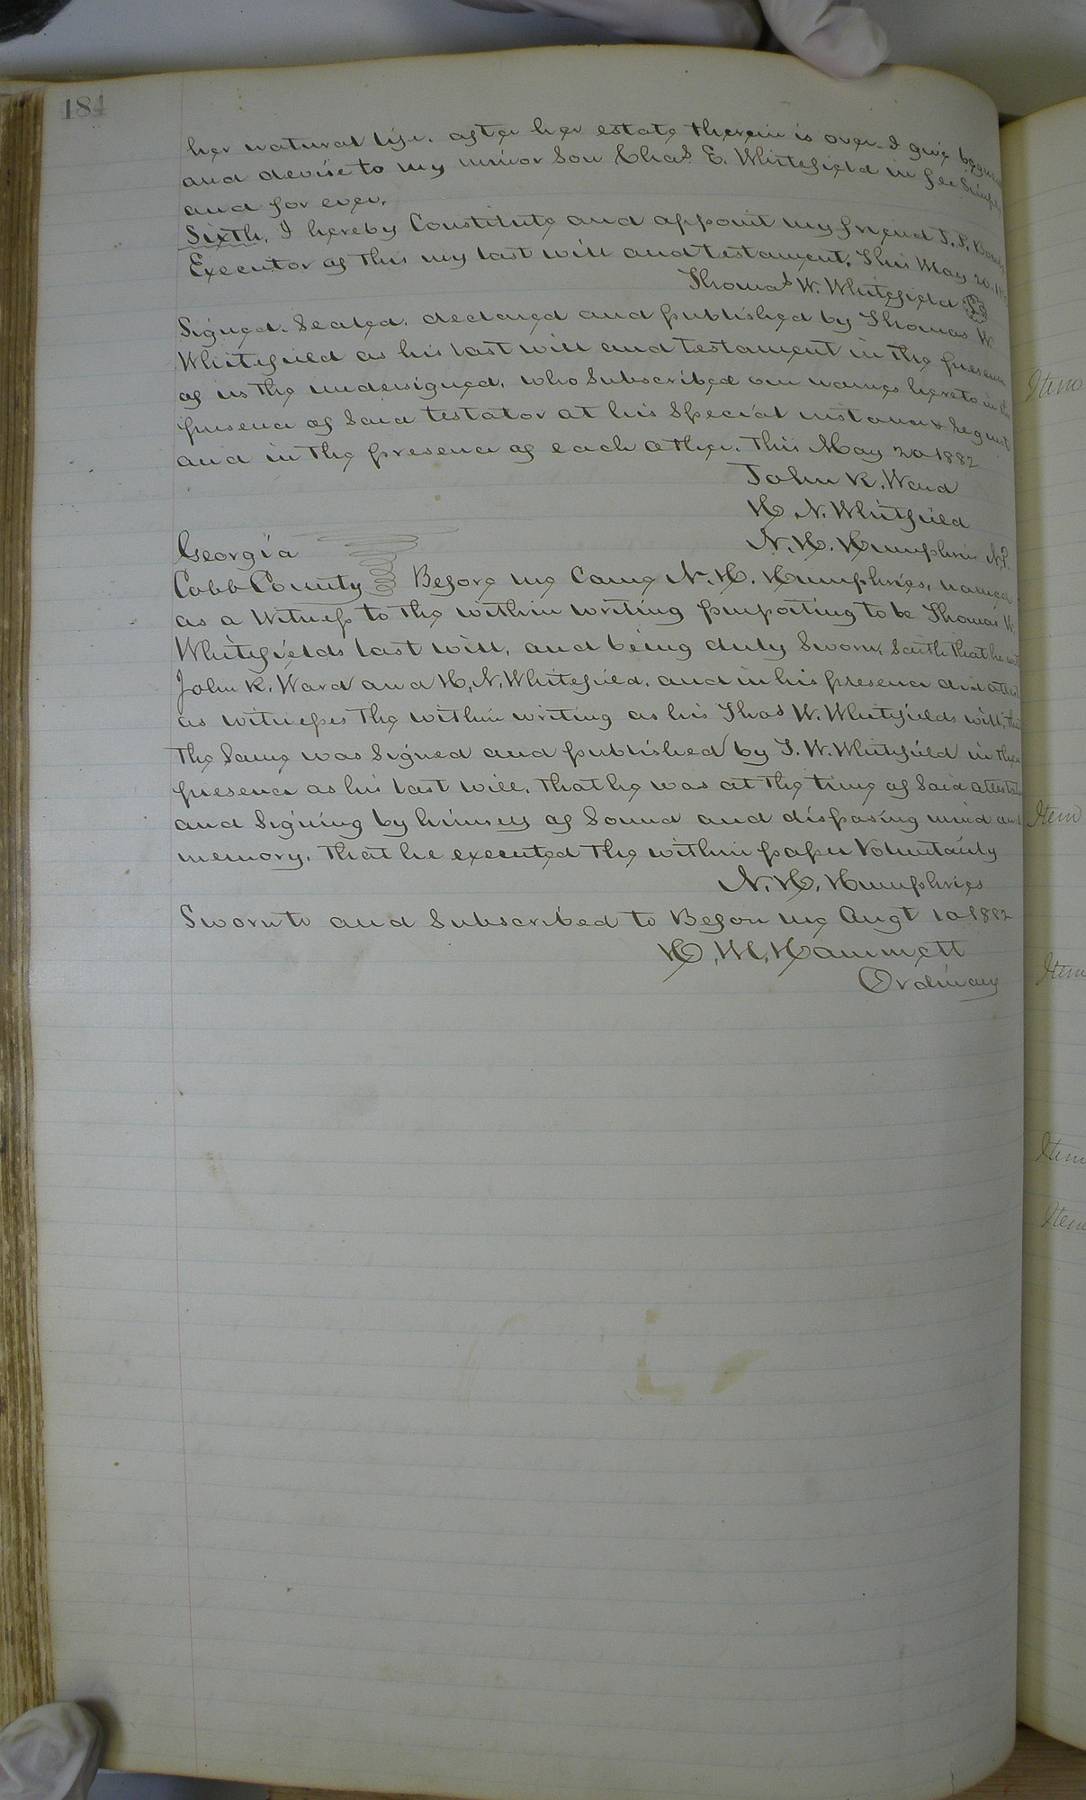 184
her natural life. after her estate therein is over I give bequeath
and devise to my minor Son Chas E. Whitefield in fee Simple
and for ever.
Sixth. I hereby Constitute and appoint my friend
Executor of this my last will and testament. This May 20,
Thomas W. Whitefield
Signed. Sealed. declared and published by Thomas W
Whitefield as his last will and testament in the presence
of us the undersigned, who Subscribed our names hereto in the
presence of Said testator at his Special instance & Request
and in the presence of each other. This May 20 1882
John R. Ward
H. N. Whitfield
N. H. Humphries N.P.
Georgia
Cobb County Before me Came N. H. Humphries, named
as a Witness to the within writing purporting to be Thomas W.
Whitefields last will, and being duly Sworn, Saith that he with
John R. Ward and H. N. Whitefield. and in his presence did attest
as witnesses the within writing as his Thos W. Whitefields will, that
The Same was Signed and published by T. W. Whitfield in their
presence as his last will. That he was at the time of Said attestation
and Signing by himself of Sound and disposing mind and
memory. That he executed the within paper Voluntarily
N. H. Humphries
Sworn to and Subscribed to Before me Augt 10 1882
H. M. Hammett
Ordinary
Item
Item
Item
Item
Item